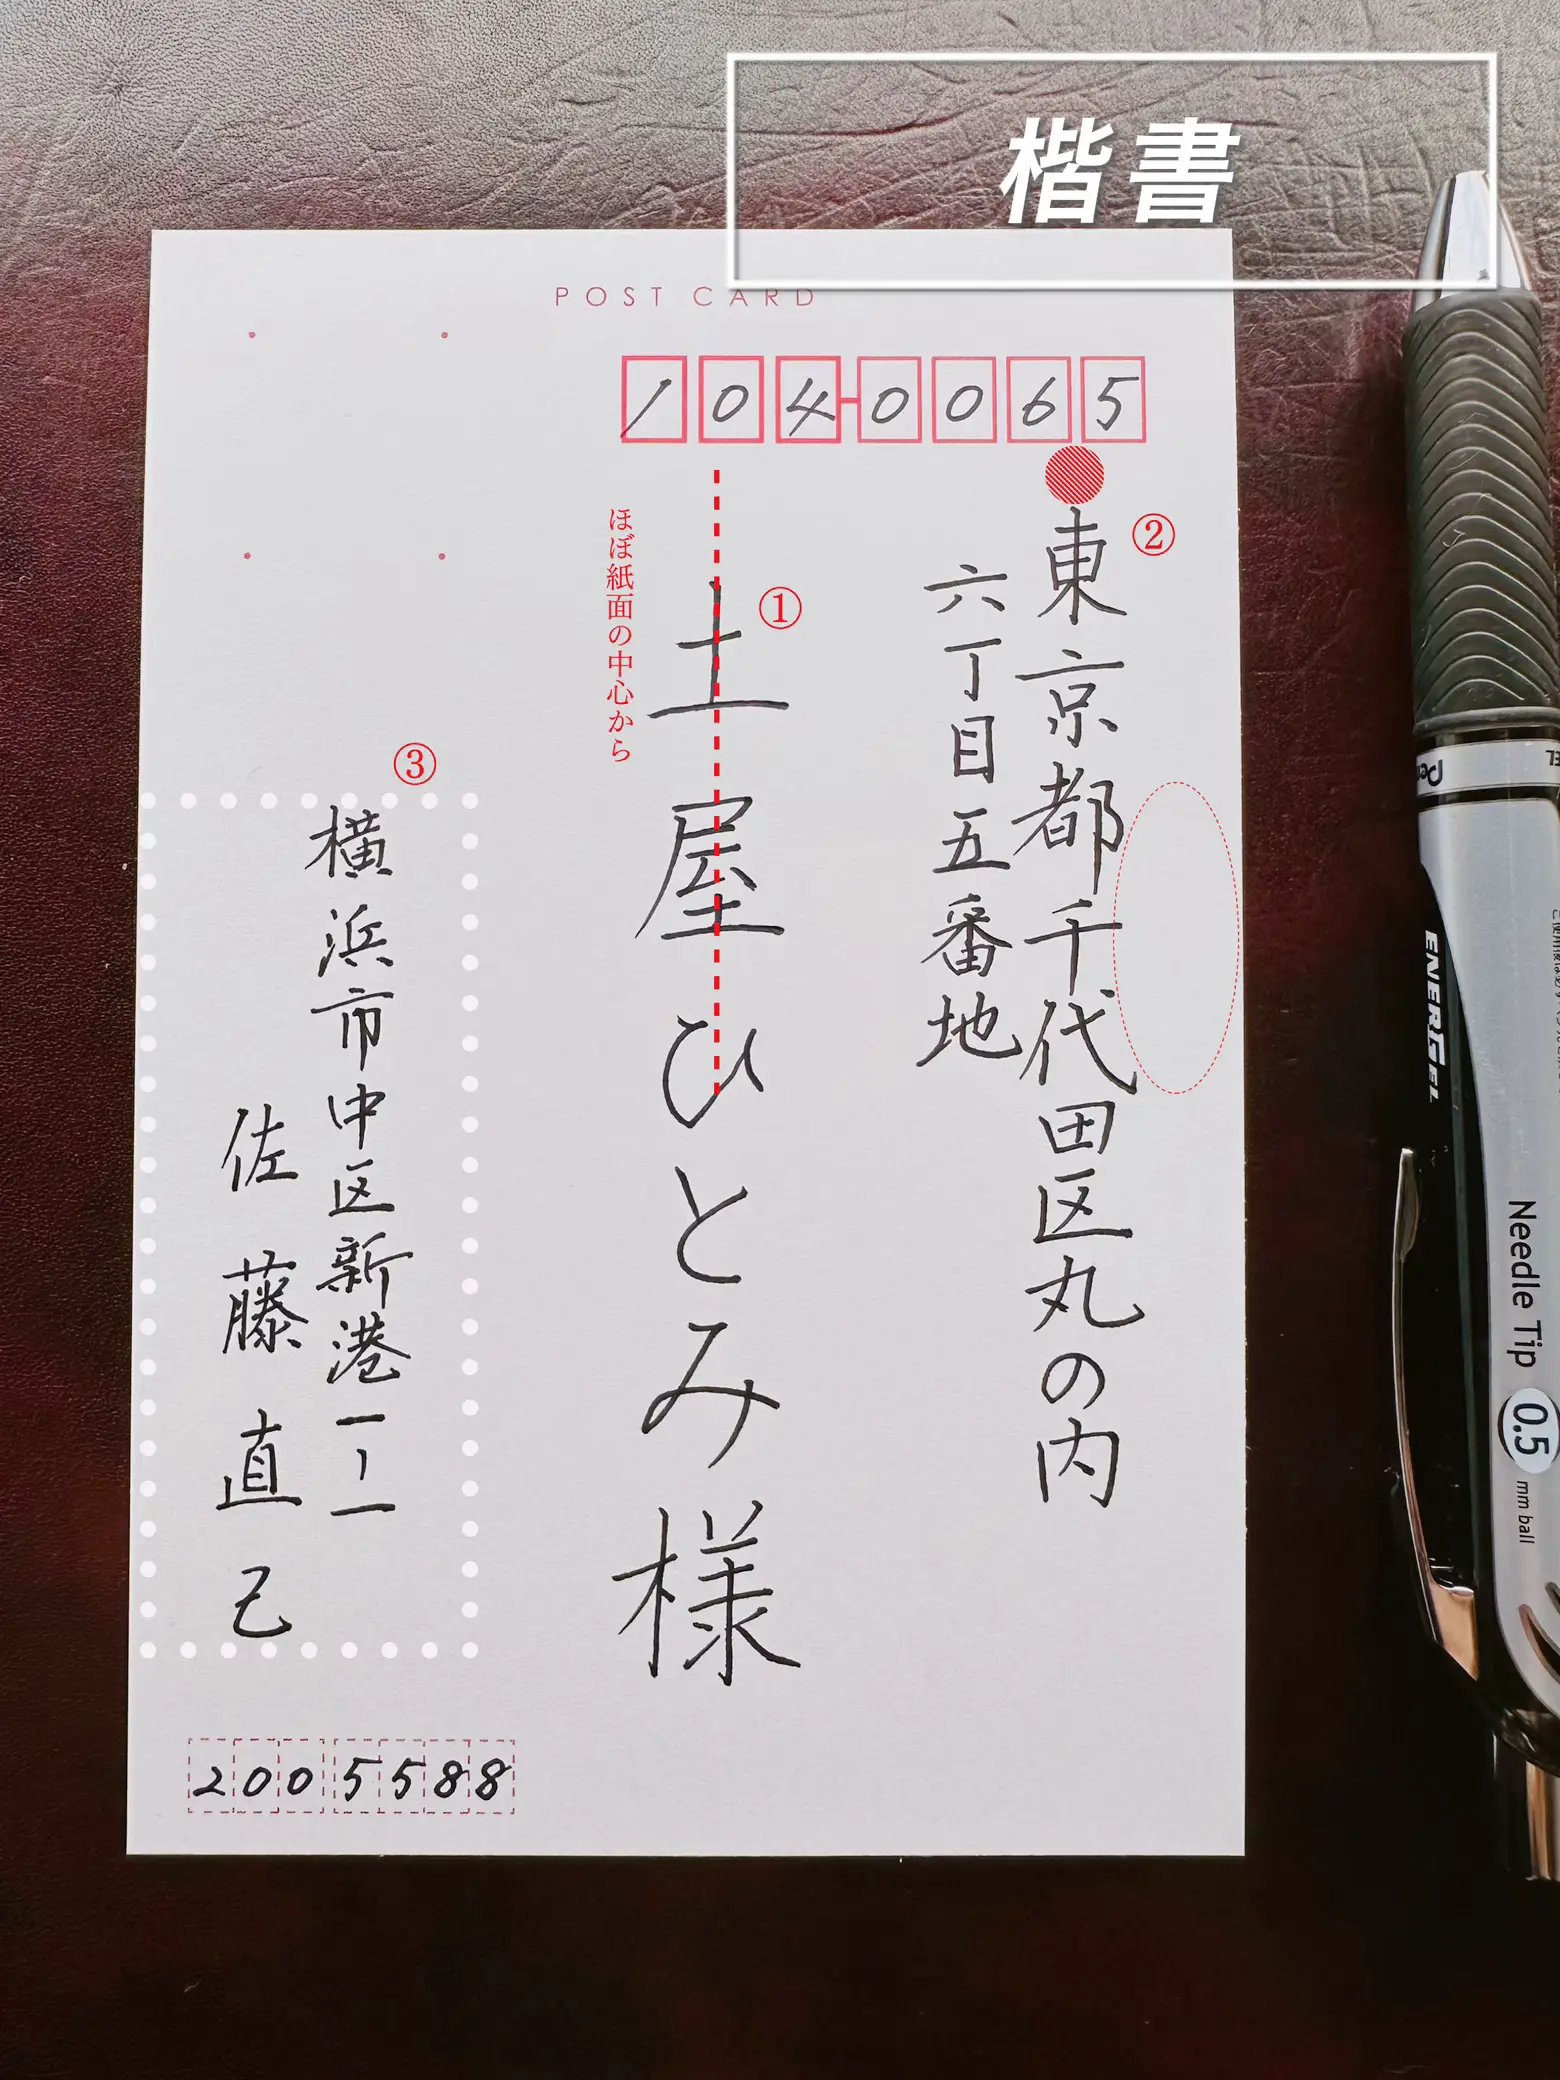 楷書
POST CARD
1040065
②
東京都千代田区丸の内
六丁目五番地
①
土屋ひとみ様
ほぼ紙面の中心から
③
横浜市中区新港一ー一
佐藤直己
2005588
Pen
EL
ENERGEL
Needle Tip
0.5
mm ball